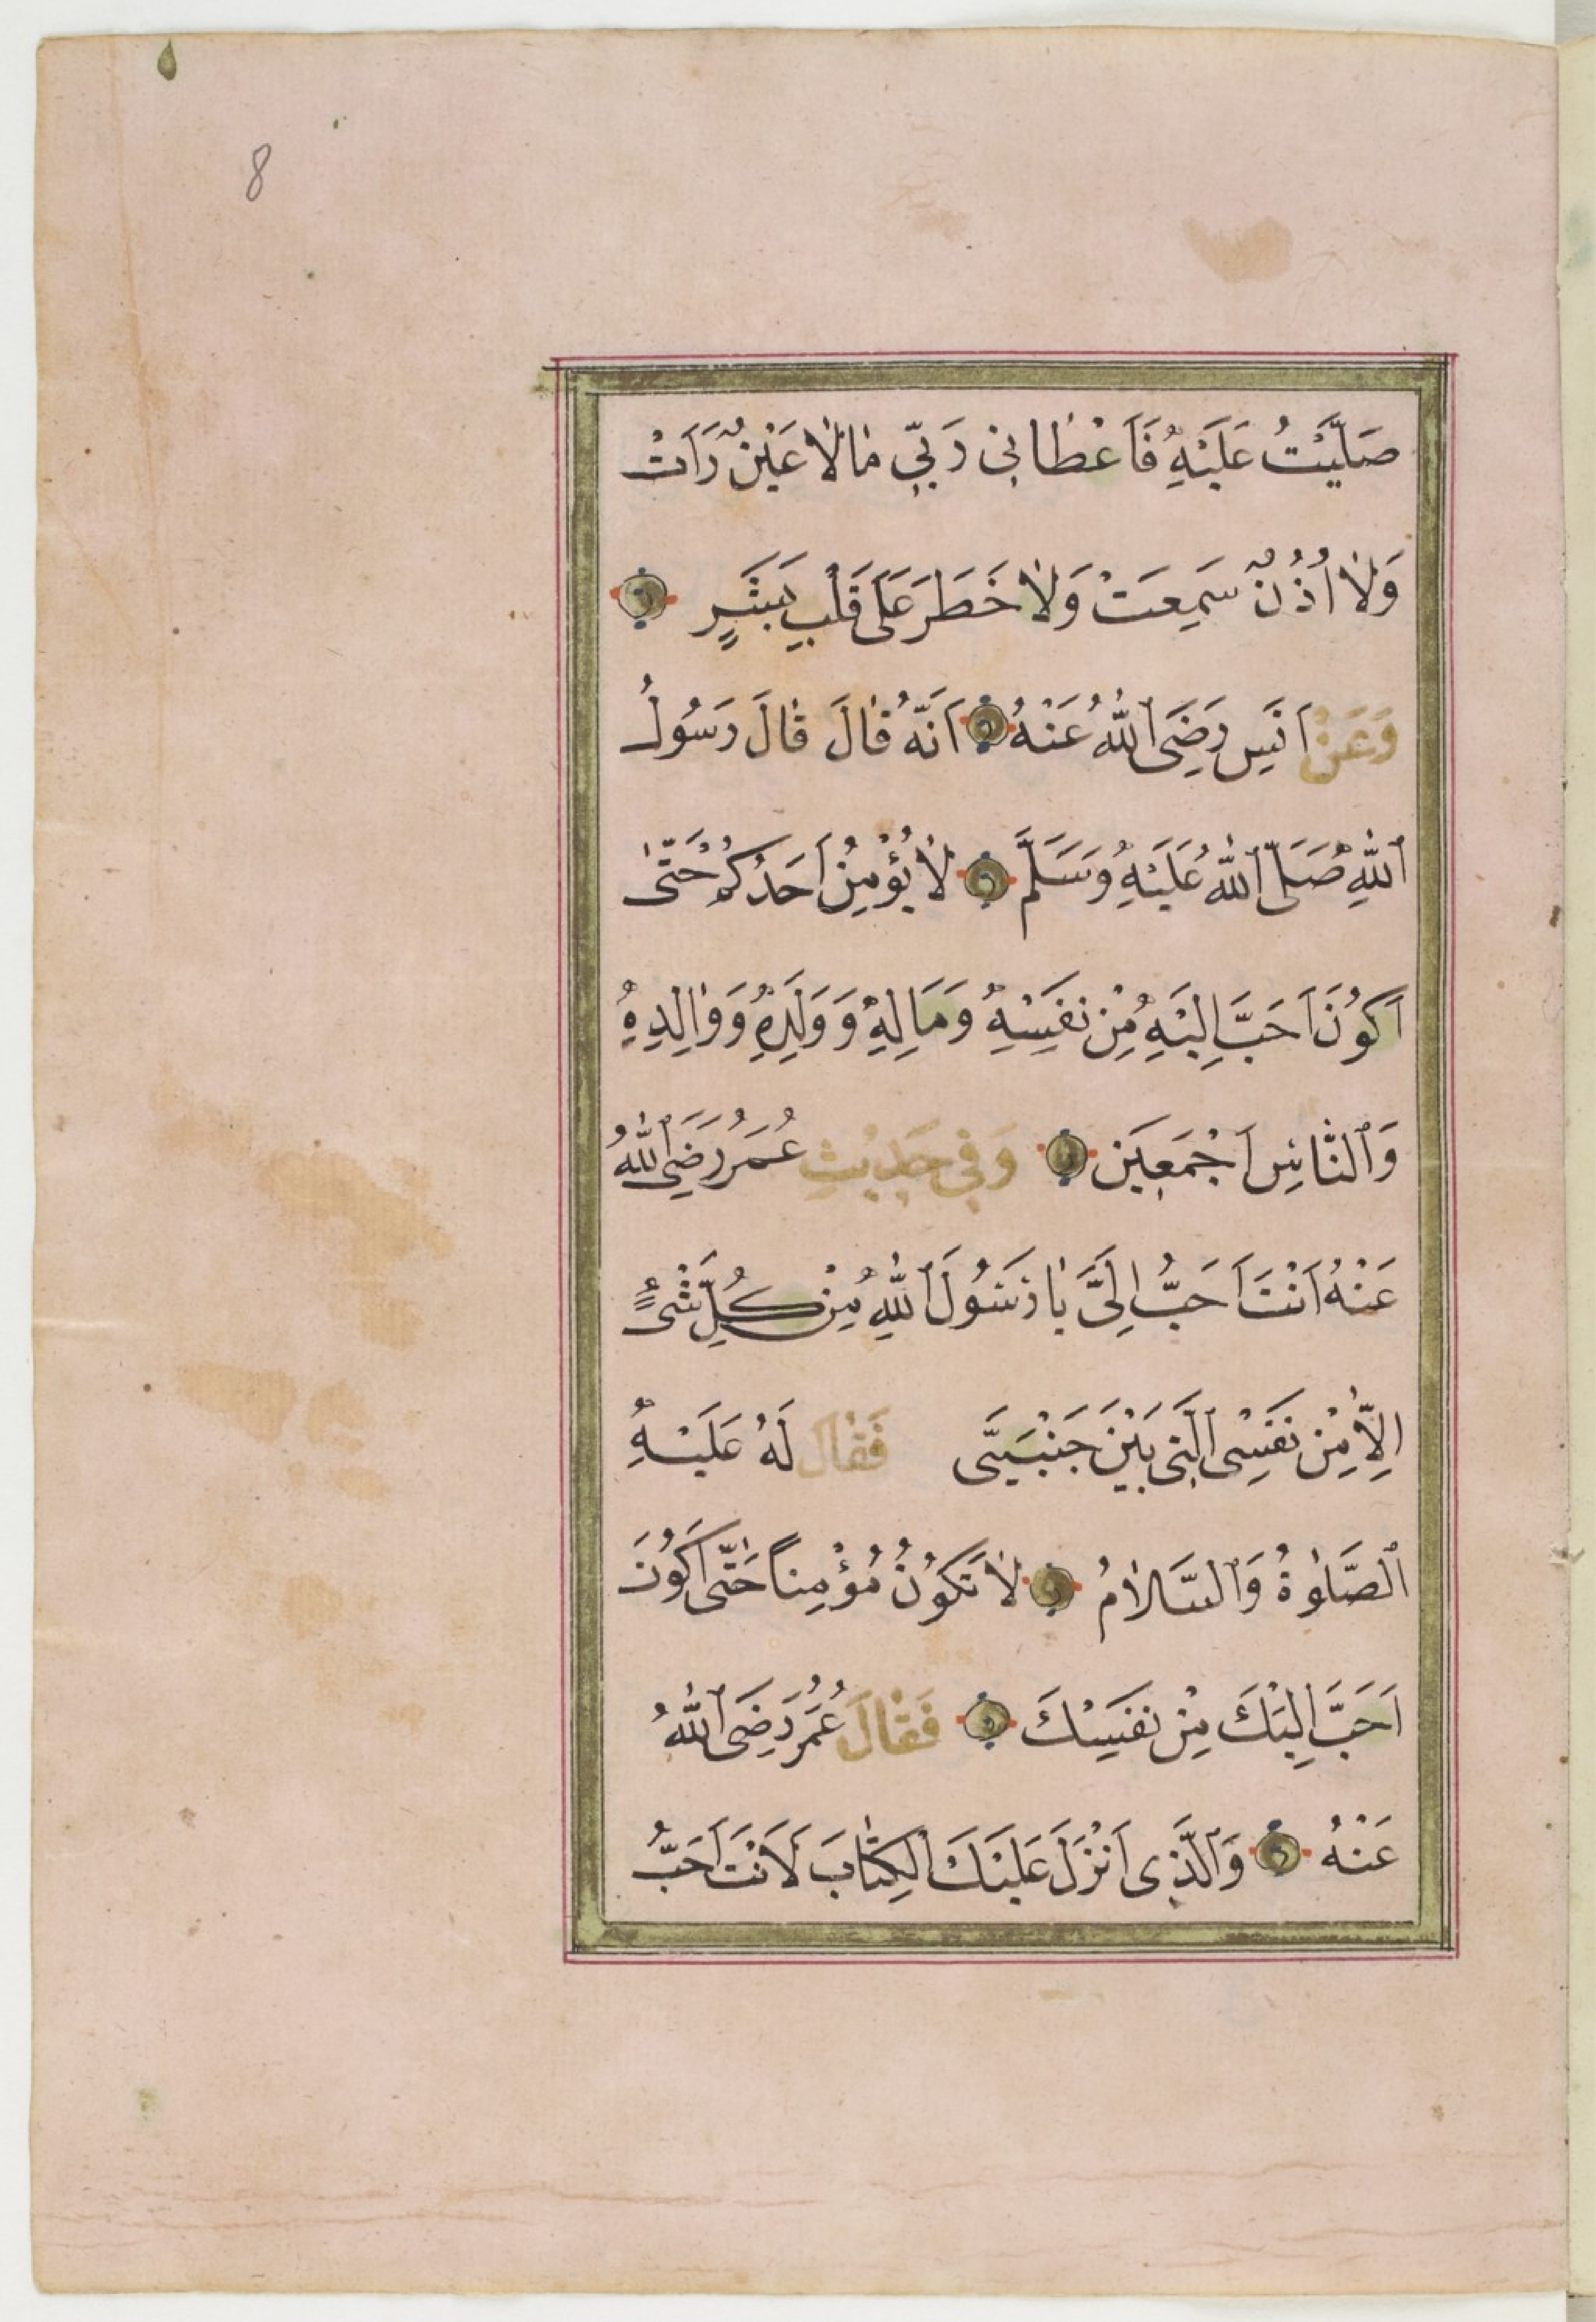 8
صَلَّيْتُ عَلَيْهِ فَاَعْطَانِى رَبِّى مَالَا عَيْنٌ رَاَتْ
وَلَا اُذُنٌ سَمِعَتْ وَلَا خَطَرَ عَلَى قَلْبِ بَشَرٍ
وَعَنْ اَنَسٍ رَضِىَ ٱللّٰهُ عَنْهُ اَنَّهُ قَالَ قَالَ رَسُولُ
ٱللّٰهِ صَلَّى ٱللّٰهُ عَلَيْهِ وَسَلَّمَ لَا يُؤْمِنُ اَحَدُكُمْ حَتّٰى
اَكُونَ اَحَبَّ اِلَيْهِ مِنْ نَفْسِهِ وَمَالِهِ وَوَلَدِهِ وَوَالِدِهِ
وَٱلنَّاسِ اَجْمَعِينَ وَفِى حَدِيثِ عُمَرَ رَضِىَ ٱللّٰهُ
عَنْهُ اَنْتَ اَحَبُّ اِلَىَّ يَا رَسُولَ ٱللّٰهِ مِنْ كُلِّ شَىْءٍ
اِلَّا مِنْ نَفْسِى ٱلَّتِى بَيْنَ جَنْبَىَّ فَقَالَ لَهُ عَلَيْهِ
ٱلصَّلٰوةُ وَٱلسَّلَامُ لَا تَكُونُ مُؤْمِناً حَتّٰى اَكُونَ
اَحَبَّ اِلَيْكَ مِنْ نَفْسِكَ فَقَالَ عُمَرُ رَضِىَ ٱللّٰهُ
عَنْهُ وَٱلَّذِى اَنْزَلَ عَلَيْكَ ٱلْكِتَابَ لَاَنْتَ اَحَبُّ